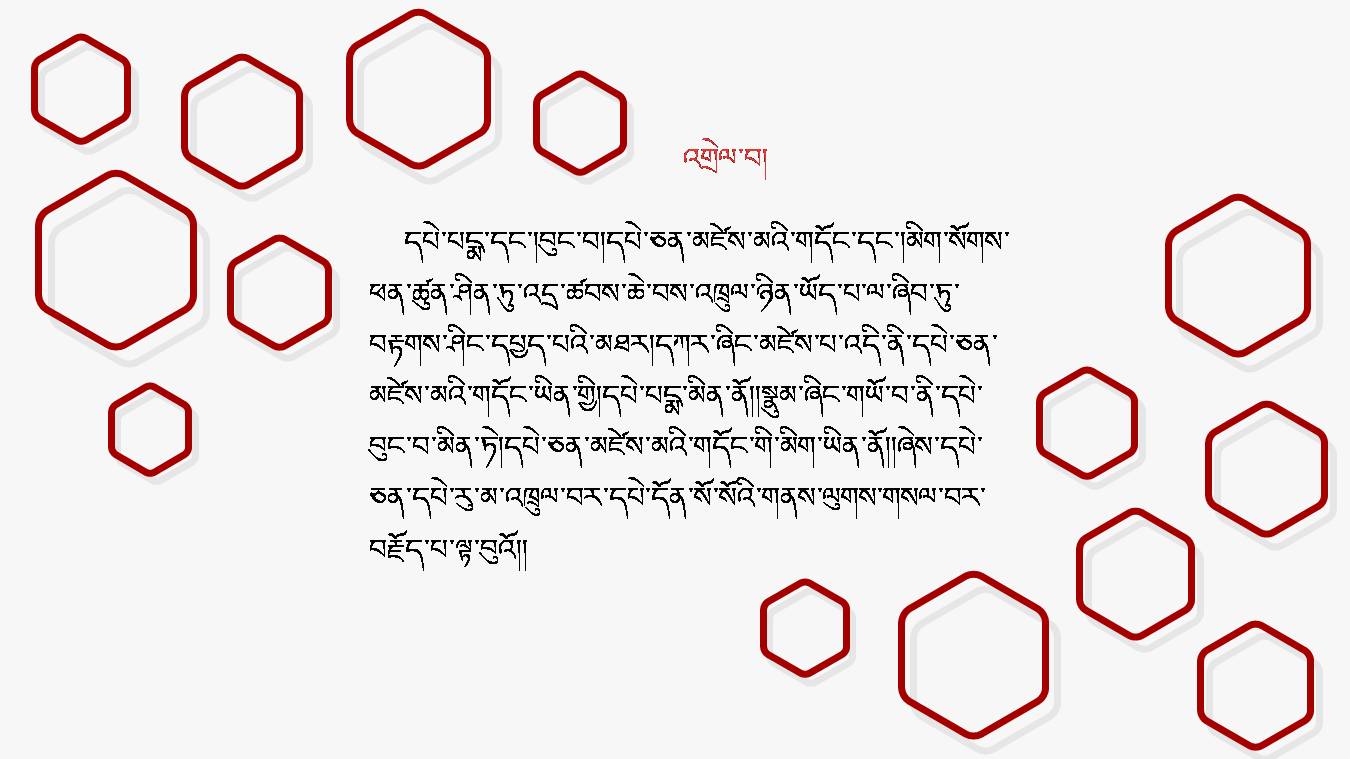 འགྲེལ་བ།
དཔེ་པདྨ་དང་།བུང་བ།དཔེ་ཅན་མཛེས་མའི་གདོང་དང་།མིག་སོགས་
ཕན་ཚུན་ཤིན་ཏུ་འདྲ་ཚབས་ཆེ་བས་འཁྲུལ་ཉེན་ཡོད་པ་ལ་ཞིབ་ཏུ་
བརྟགས་ཤིང་དཔྱད་པའི་མཐར།དཀར་ཞིང་མཛེས་པ་འདི་ནི་དཔེ་ཅན་
མཛེས་མའི་གདོང་ཡིན་གྱི།དཔེ་པདྨ་མིན་ནོ།།སྣུམ་ཞིང་གཡོ་བ་ནི་དཔེ་
བུང་བ་མིན་ཏེ།དཔེ་ཅན་མཛེས་མའི་གདོང་གི་མིག་ཡིན་ནོ།།ཞེས་དཔེ་
ཅན་དཔེ་རུ་མ་འཁྲུལ་བར་དཔེ་དོན་སོ་སོའི་གནས་ལུགས་གསལ་བར་
བརྗོད་པ་ལྟ་བུའོ།།